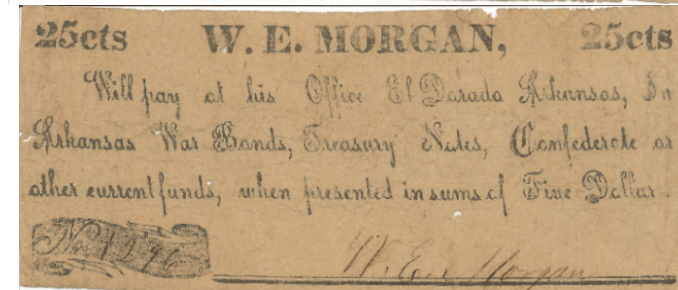 25cts W. E. MORGAN, 25cts
Will pay at his Office El Dorada Arkansas, In
Arkansas War Bonds, Treasury Notes, Confederate or
other current funds, when presented in sums of Five Dollar.
No 1296
W. E. Morgan